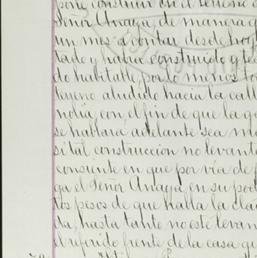 pone, construir en el terreno d
Señor Anaya, de manera q
un mes á contar desde hoy
tado y habrá construido y te
do habitable, por lo menos to
rreno aludido hacia la call
ndia, con el fin de que la q
se hablará adelante sea m
si tal construccion no levant
consiente en que por via de p
ga el Señor Anaya en su pod
tos pesos de que habla la clau
da, hasta tanto no esté levan
el referido frente de la casa qu